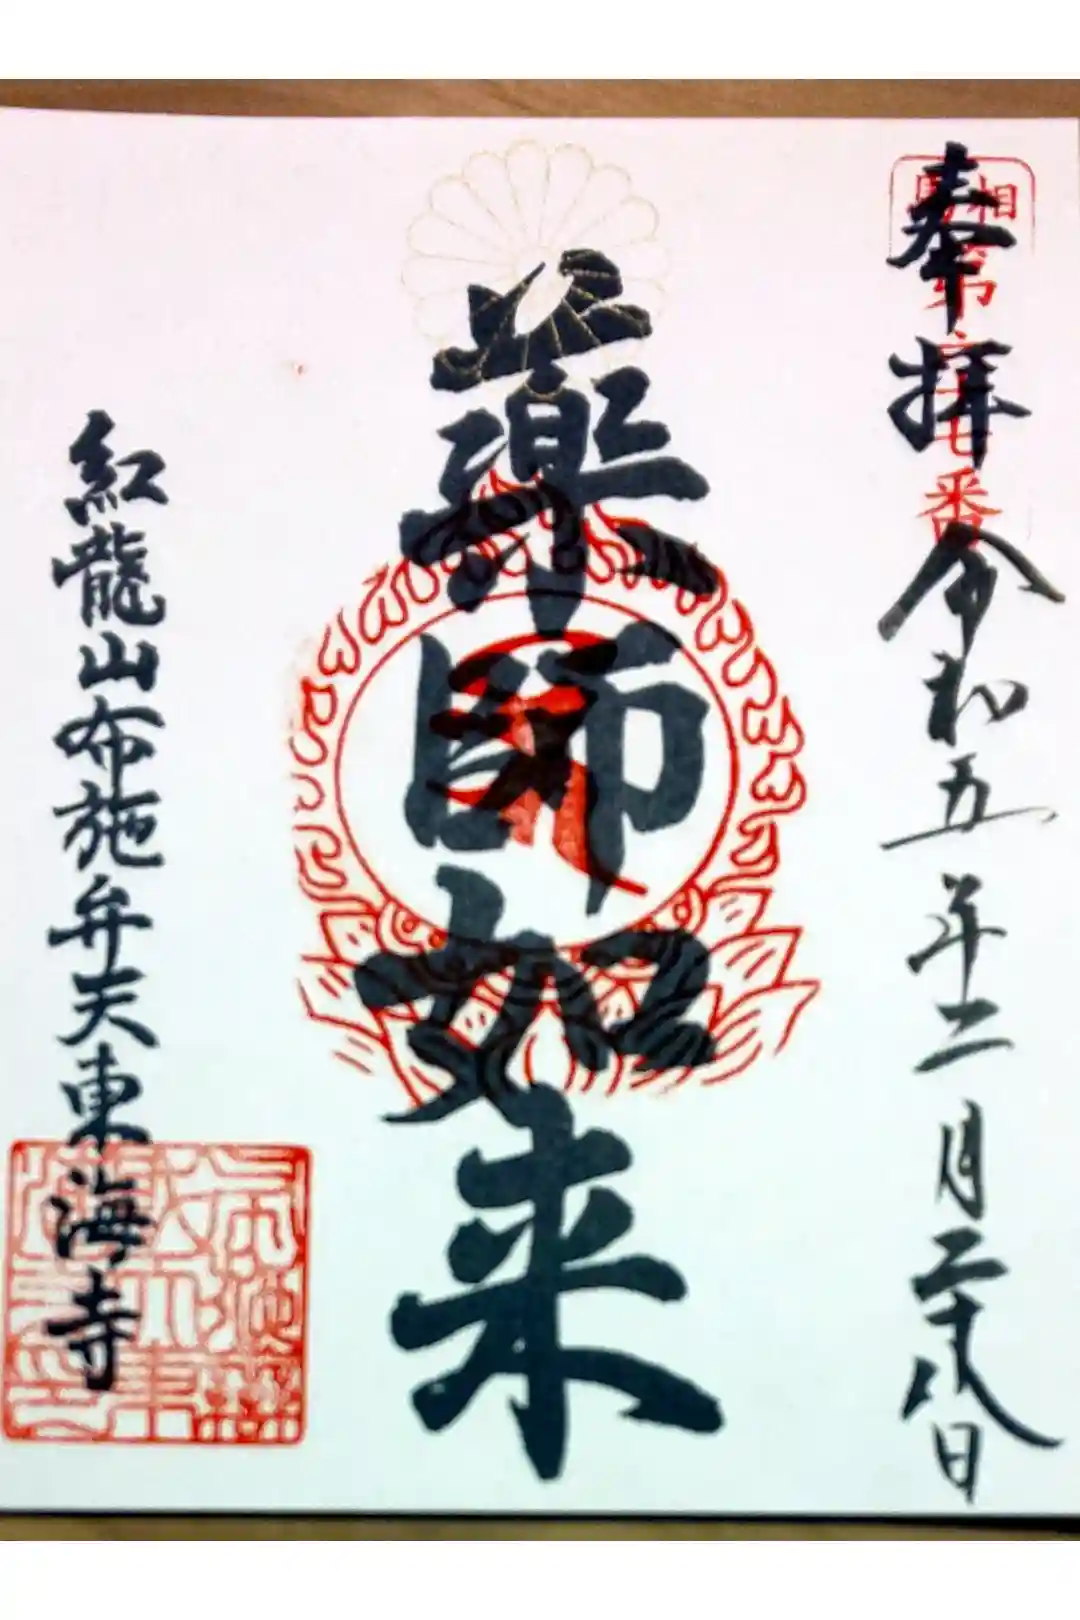 奉拝
令和五年二月二十八日
薬師如来
紅龍山布施弁天東海寺